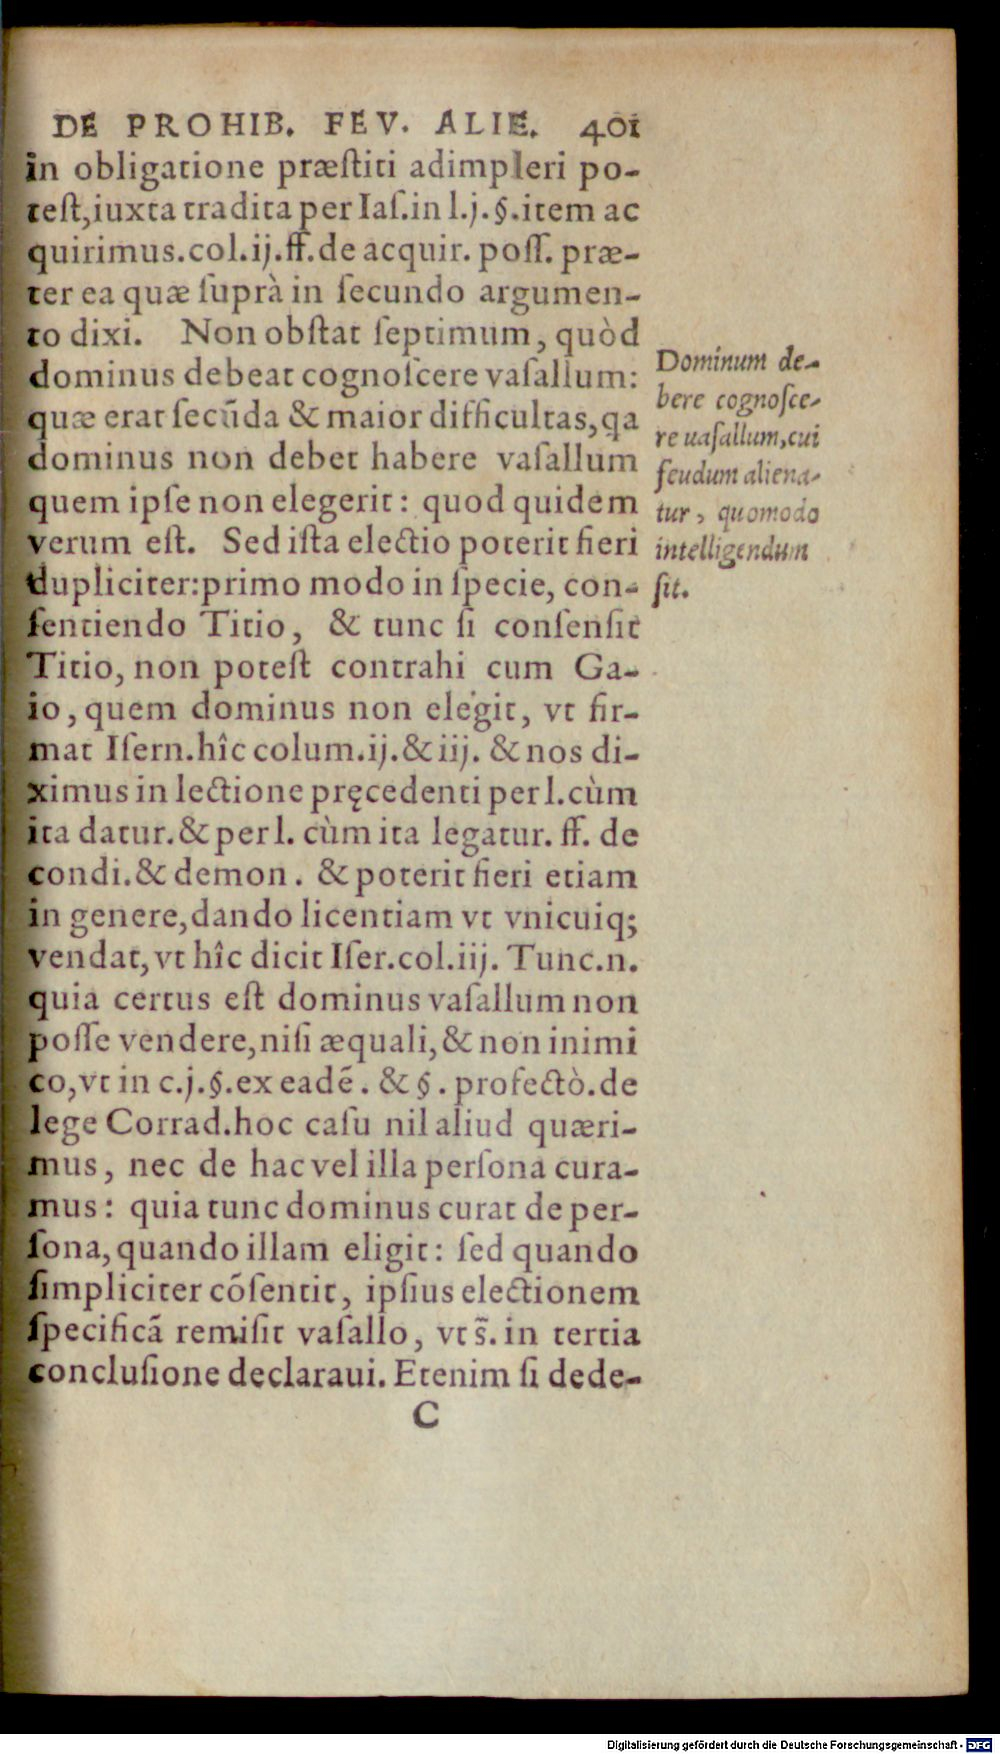 DE PROHIB. FEV. ALIE. 401
in obligatione præſtiti adimpleri po-
teſt,iuxta tradita per Iaſ.in l.j.§.item ac
quirimus.col.ij.ff.de acquir. poſſ. præ-
ter ea quæ ſuprà in ſecundo argumen-
to dixi. Non obſtat ſeptimum, quòd
dominus debeat cognoſcere vaſallum:
quæ erat ſecũda & maior difficultas,qa
dominus non debet habere vaſallum
quem ipſe non elegerit: quod quidem
verum eſt. Sed iſta electio poterit fieri
dupliciter:primo modo in ſpecie, con-
ſentiendo Titio, & tunc ſi conſenſit
Titio, non poteſt contrahi cum Ga-
io, quem dominus non elegit, vt fir-
mat Iſern.hîc colum.ij.& iij. & nos di-
ximus in lectione pręcedenti per l.cùm
ita datur.& per l. cùm ita legatur. ff. de
condi.& demon. & poterit fieri etiam
in genere,dando licentiam vt vnicuiq;
vendat, vt hîc dicit Iſer.col.iij. Tunc.n.
quia certus eſt dominus vaſallum non
poſſe vendere,niſi æquali,& non inimi
co,vt in c.j.§.ex eadẽ. & §. profectò.de
lege Corrad.hoc caſu nil aliud quæri-
mus, nec de hac vel illa perſona cura-
mus: quia tunc dominus curat de per-
ſona, quando illam eligit: ſed quando
ſimpliciter cõſentit, ipſius electionem
ſpecificã remiſit vaſallo, vt s̃. in tertia
concluſione declaraui. Etenim ſi dede-
C
Dominum de-
bere cognoſce-
re uaſallum,cui
feudum aliena-
tur, quomodo
intelligendum
ſit.
Digitalisierung gefördert durch die Deutsche Forschungsgemeinschaft - DFG